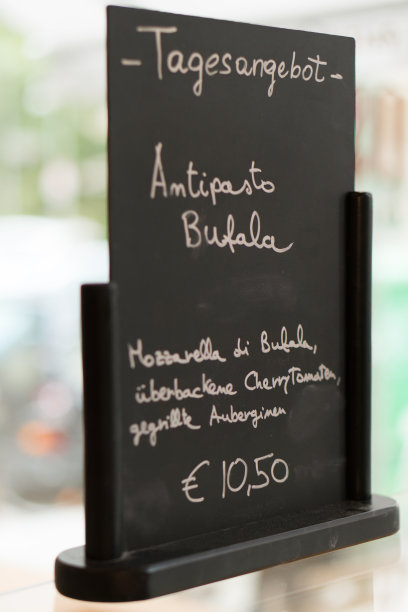 -Tagesangebot-
Antipasto
Bufala
Mozzarella di Bufala,
überbackene Cherrytomaten,
gegrillte Auberginen
€ 10,50